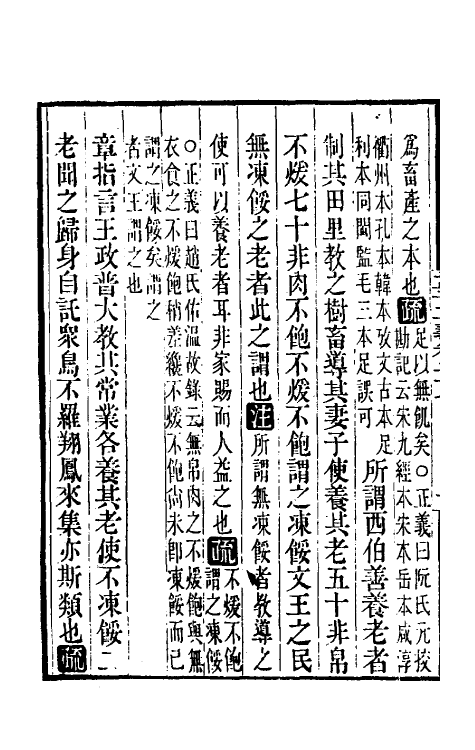 爲畜產之本也疏足以無飢矣○正義曰阮氏元挍
勘記云宋九經本宋本岳本咸淳
衢州本孔本韓本攷文古本足
利本同閩監毛三本足誤可所謂西伯善養老者
制其田里教之樹畜導其妻子使養其老五十非帛
不煖七十非肉不飽不煖不飽謂之凍餒文王之民
無凍餒之老者此之謂也注所謂無凍餒者教導之
使可以養老者耳非家賜而人益之也疏不煖不飽
謂之凍餒
○正義曰趙氏佑溫故錄云無帛肉之不煖飽與無
衣食之不煖飽稍差纔不煖不飽尚未卽凍餒而已
謂之凍餒矣謂之
者文王謂之也
章指言王政普大教其常業各養其老使不凍餒二
老聞之歸身自託衆鳥不羅翔鳳來集亦斯類也疏